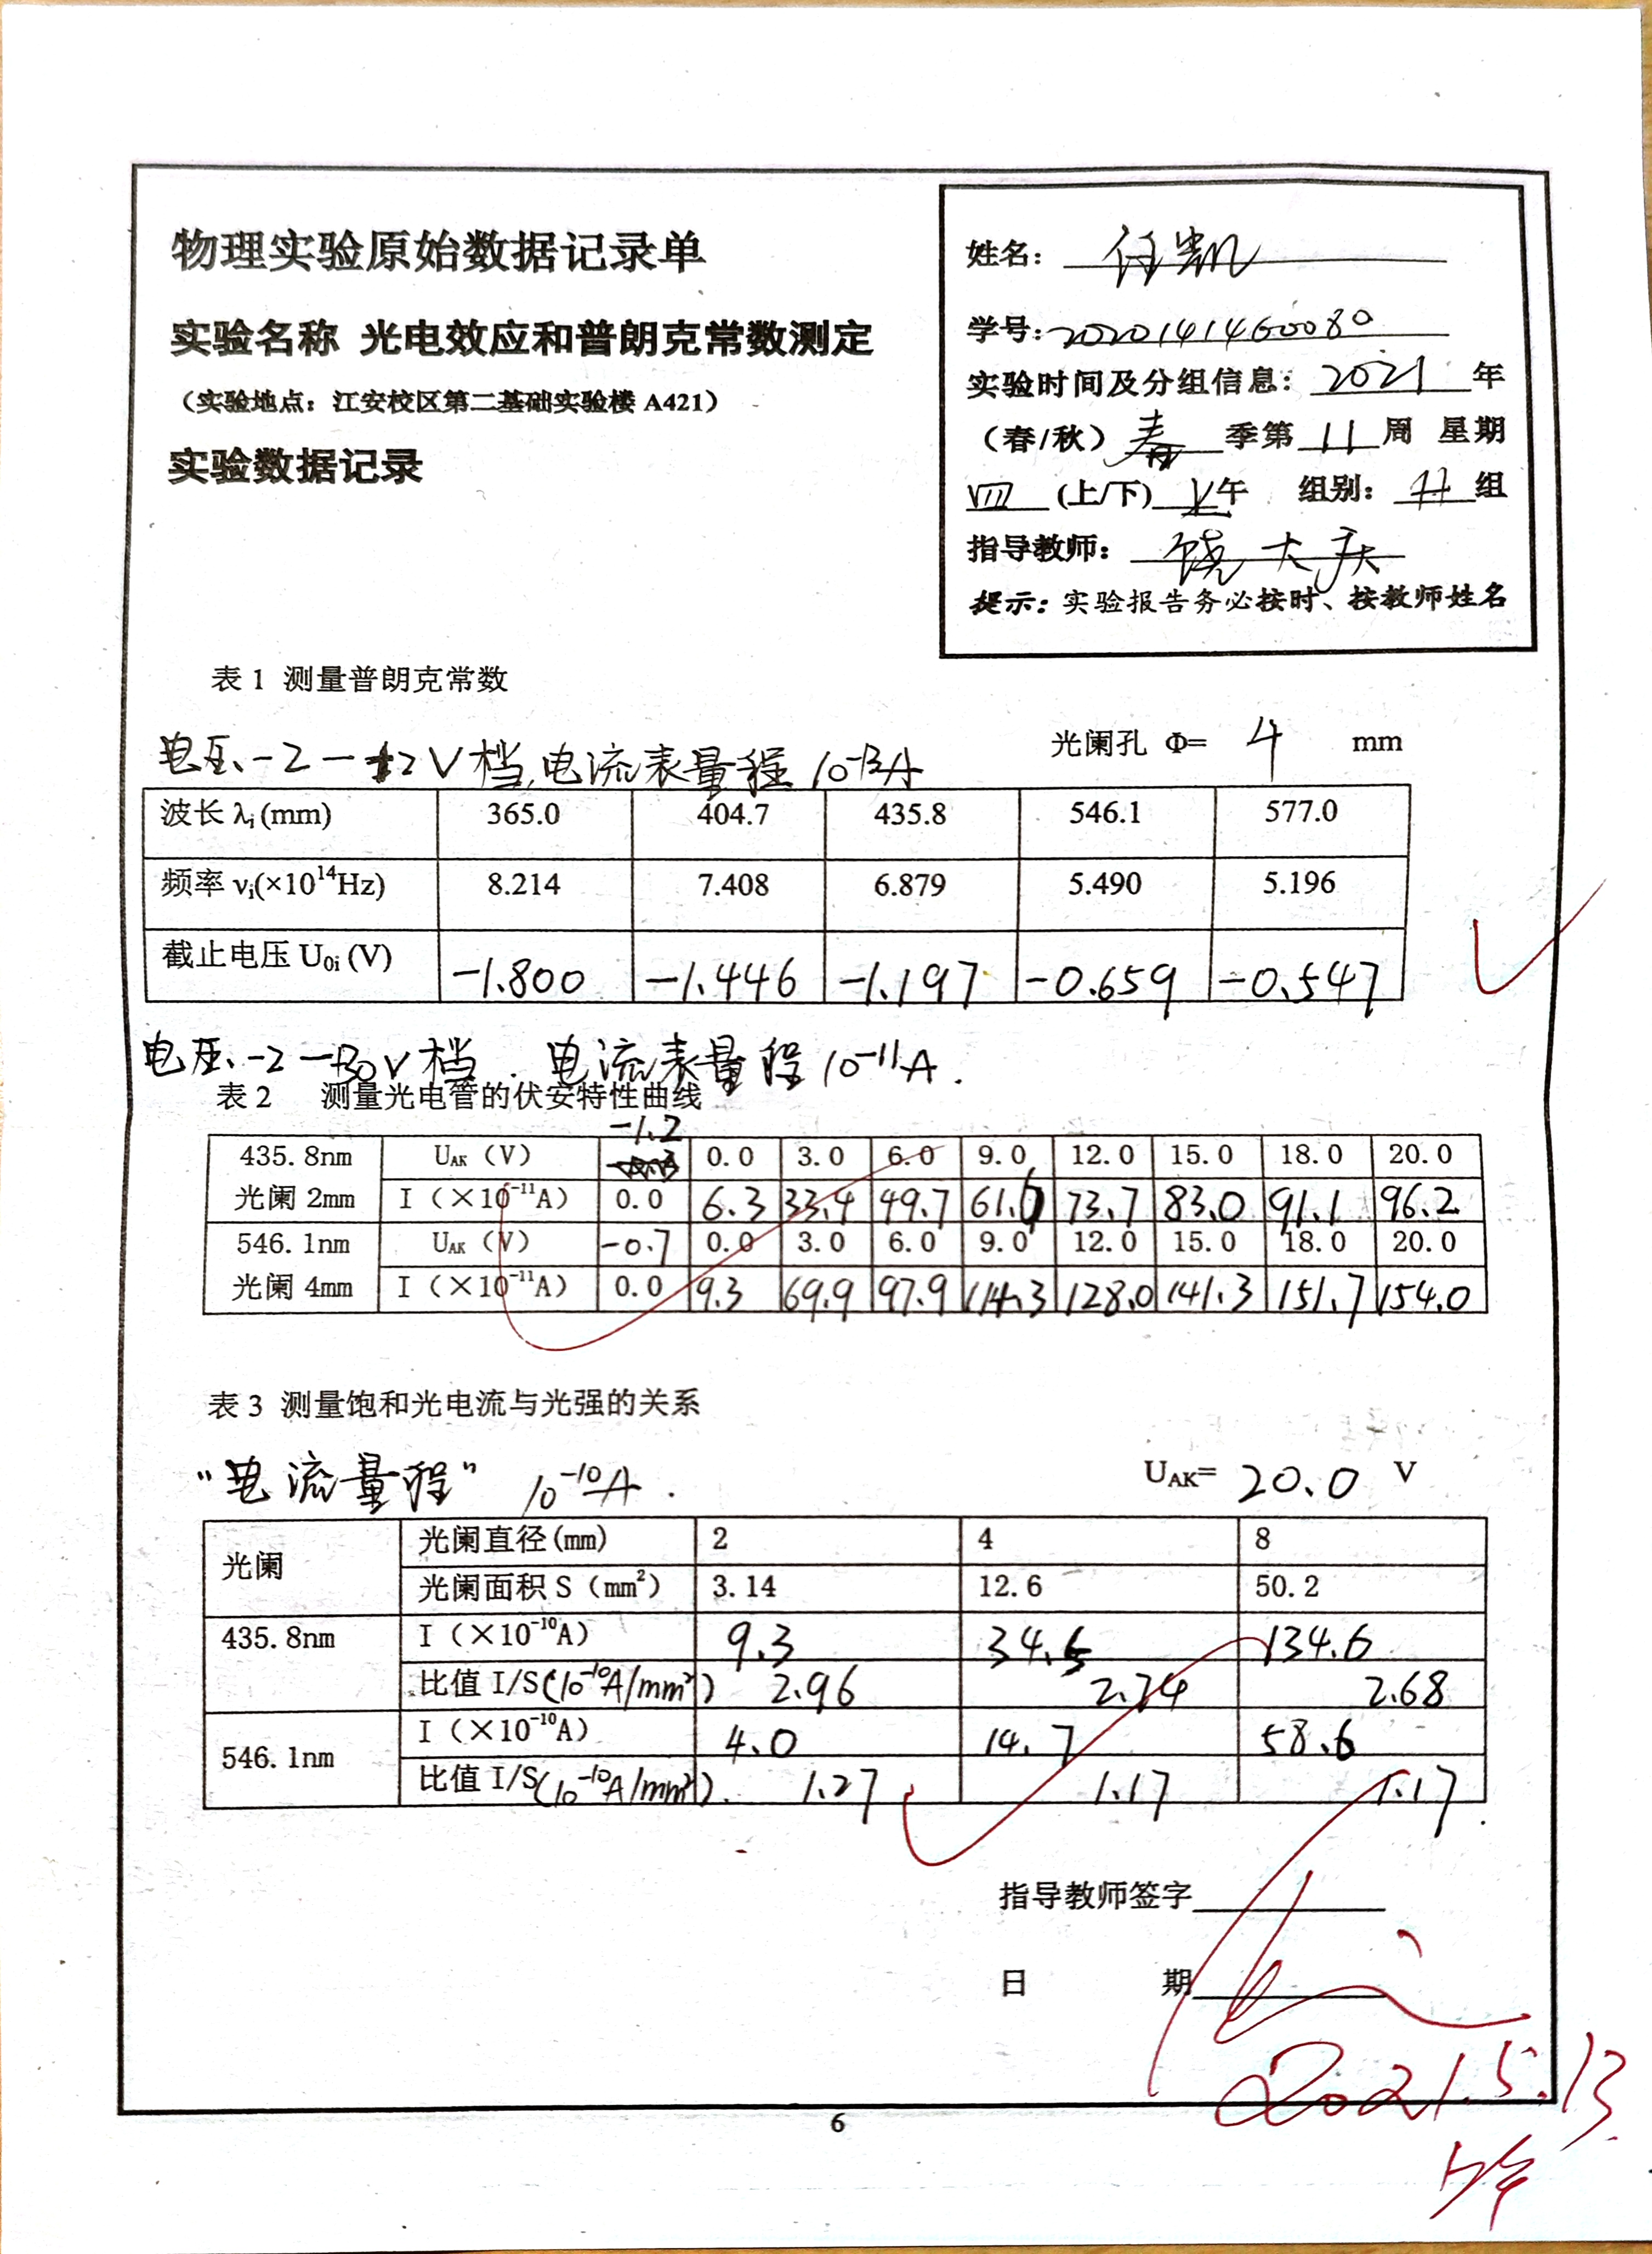 物理实验原始数据记录单
实验名称 光电效应和普朗克常数测定
(实验地点：江安校区第二基础实验楼 A421)
实验数据记录
姓名： 任凯
学号: 2020141460080
实验时间及分组信息：2021年
(春/秋) 春 季第 11 周 星期
四 (上/下) 上 午 组别： 组
指导教师： 饶大庆
提示：实验报告务必按时、按教师姓名
表 1 测量普朗克常数
光阑孔 Φ= 4 mm
电压 -2—+2V档,电流表量程 10⁻¹³A
波长 λi (mm) 365.0 404.7 435.8 546.1 577.0
频率 νi(×10¹⁴Hz) 8.214 7.408 6.879 5.490 5.196
截止电压 U0i (V) -1.800 -1.446 -1.197 -0.659 -0.547
电压 -2—+30V档. 电流表量程 10⁻¹¹A.
表 2 测量光电管的伏安特性曲线
435.8nm UAK (V) -1.2 0.0 3.0 6.0 9.0 12.0 15.0 18.0 20.0
光阑 2mm I (×10⁻¹¹A) 0.0 6.3 33.4 49.7 61.6 73.7 83.0 91.1 96.2
546.1nm UAK (V) -0.7 0.0 3.0 6.0 9.0 12.0 15.0 18.0 20.0
光阑 4mm I (×10⁻¹¹A) 0.0 9.3 69.9 97.9 114.3 128.0 141.3 151.7 154.0
表 3 测量饱和光电流与光强的关系
"电流量程" 10⁻¹⁰A.
UAK= 20.0 V
光阑 光阑直径(mm) 2 4 8
光阑面积 S (mm²) 3.14 12.6 50.2
435.8nm I (×10⁻¹⁰A) 9.3 34.5 134.6
比值 I/S(10⁻¹⁰A/mm²) 2.96 2.74 2.68
546.1nm I (×10⁻¹⁰A) 4.0 14.7 58.6
比值 I/S(10⁻¹⁰A/mm²). 1.27 1.17 1.17
指导教师签字
日 期
2021.5.13
上午
6